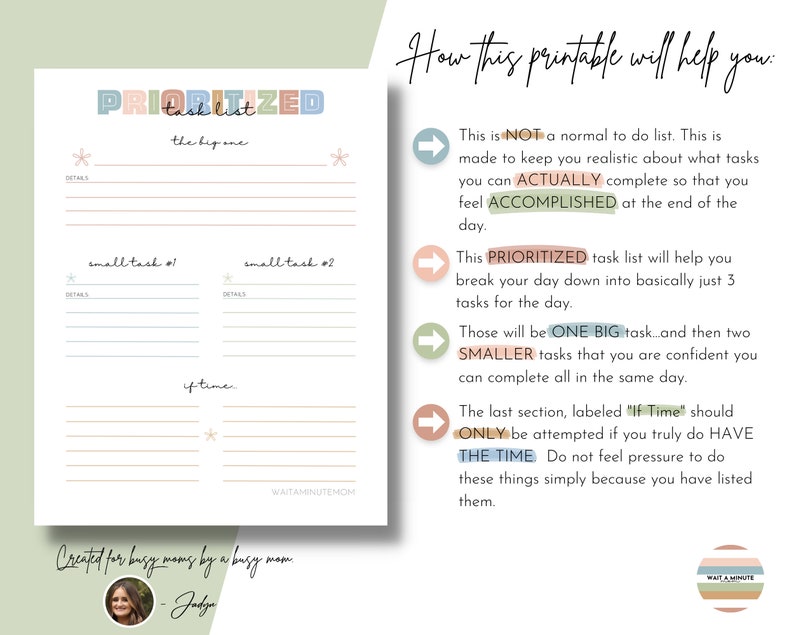 PRIORITIZED
task list
the big one
DETAILS:
small task #1
small task #2
DETAILS:
DETAILS:
if time...
WAITAMINUTEMOM
Created for busy moms by a busy mom.
- Jadyn
How this printable will help you:
This is NOT a normal to do list. This is
made to keep you realistic about what tasks
you can ACTUALLY complete so that you
feel ACCOMPLISHED at the end of the
day.
This PRIORITIZED task list will help you
break your day down into basically just 3
tasks for the day.
Those will be ONE BIG task...and then two
SMALLER tasks that you are confident you
can complete all in the same day.
The last section, labeled "If Time" should
ONLY be attempted if you truly do HAVE
THE TIME. Do not feel pressure to do
these things simply because you have listed
them.
WAIT A MINUTE